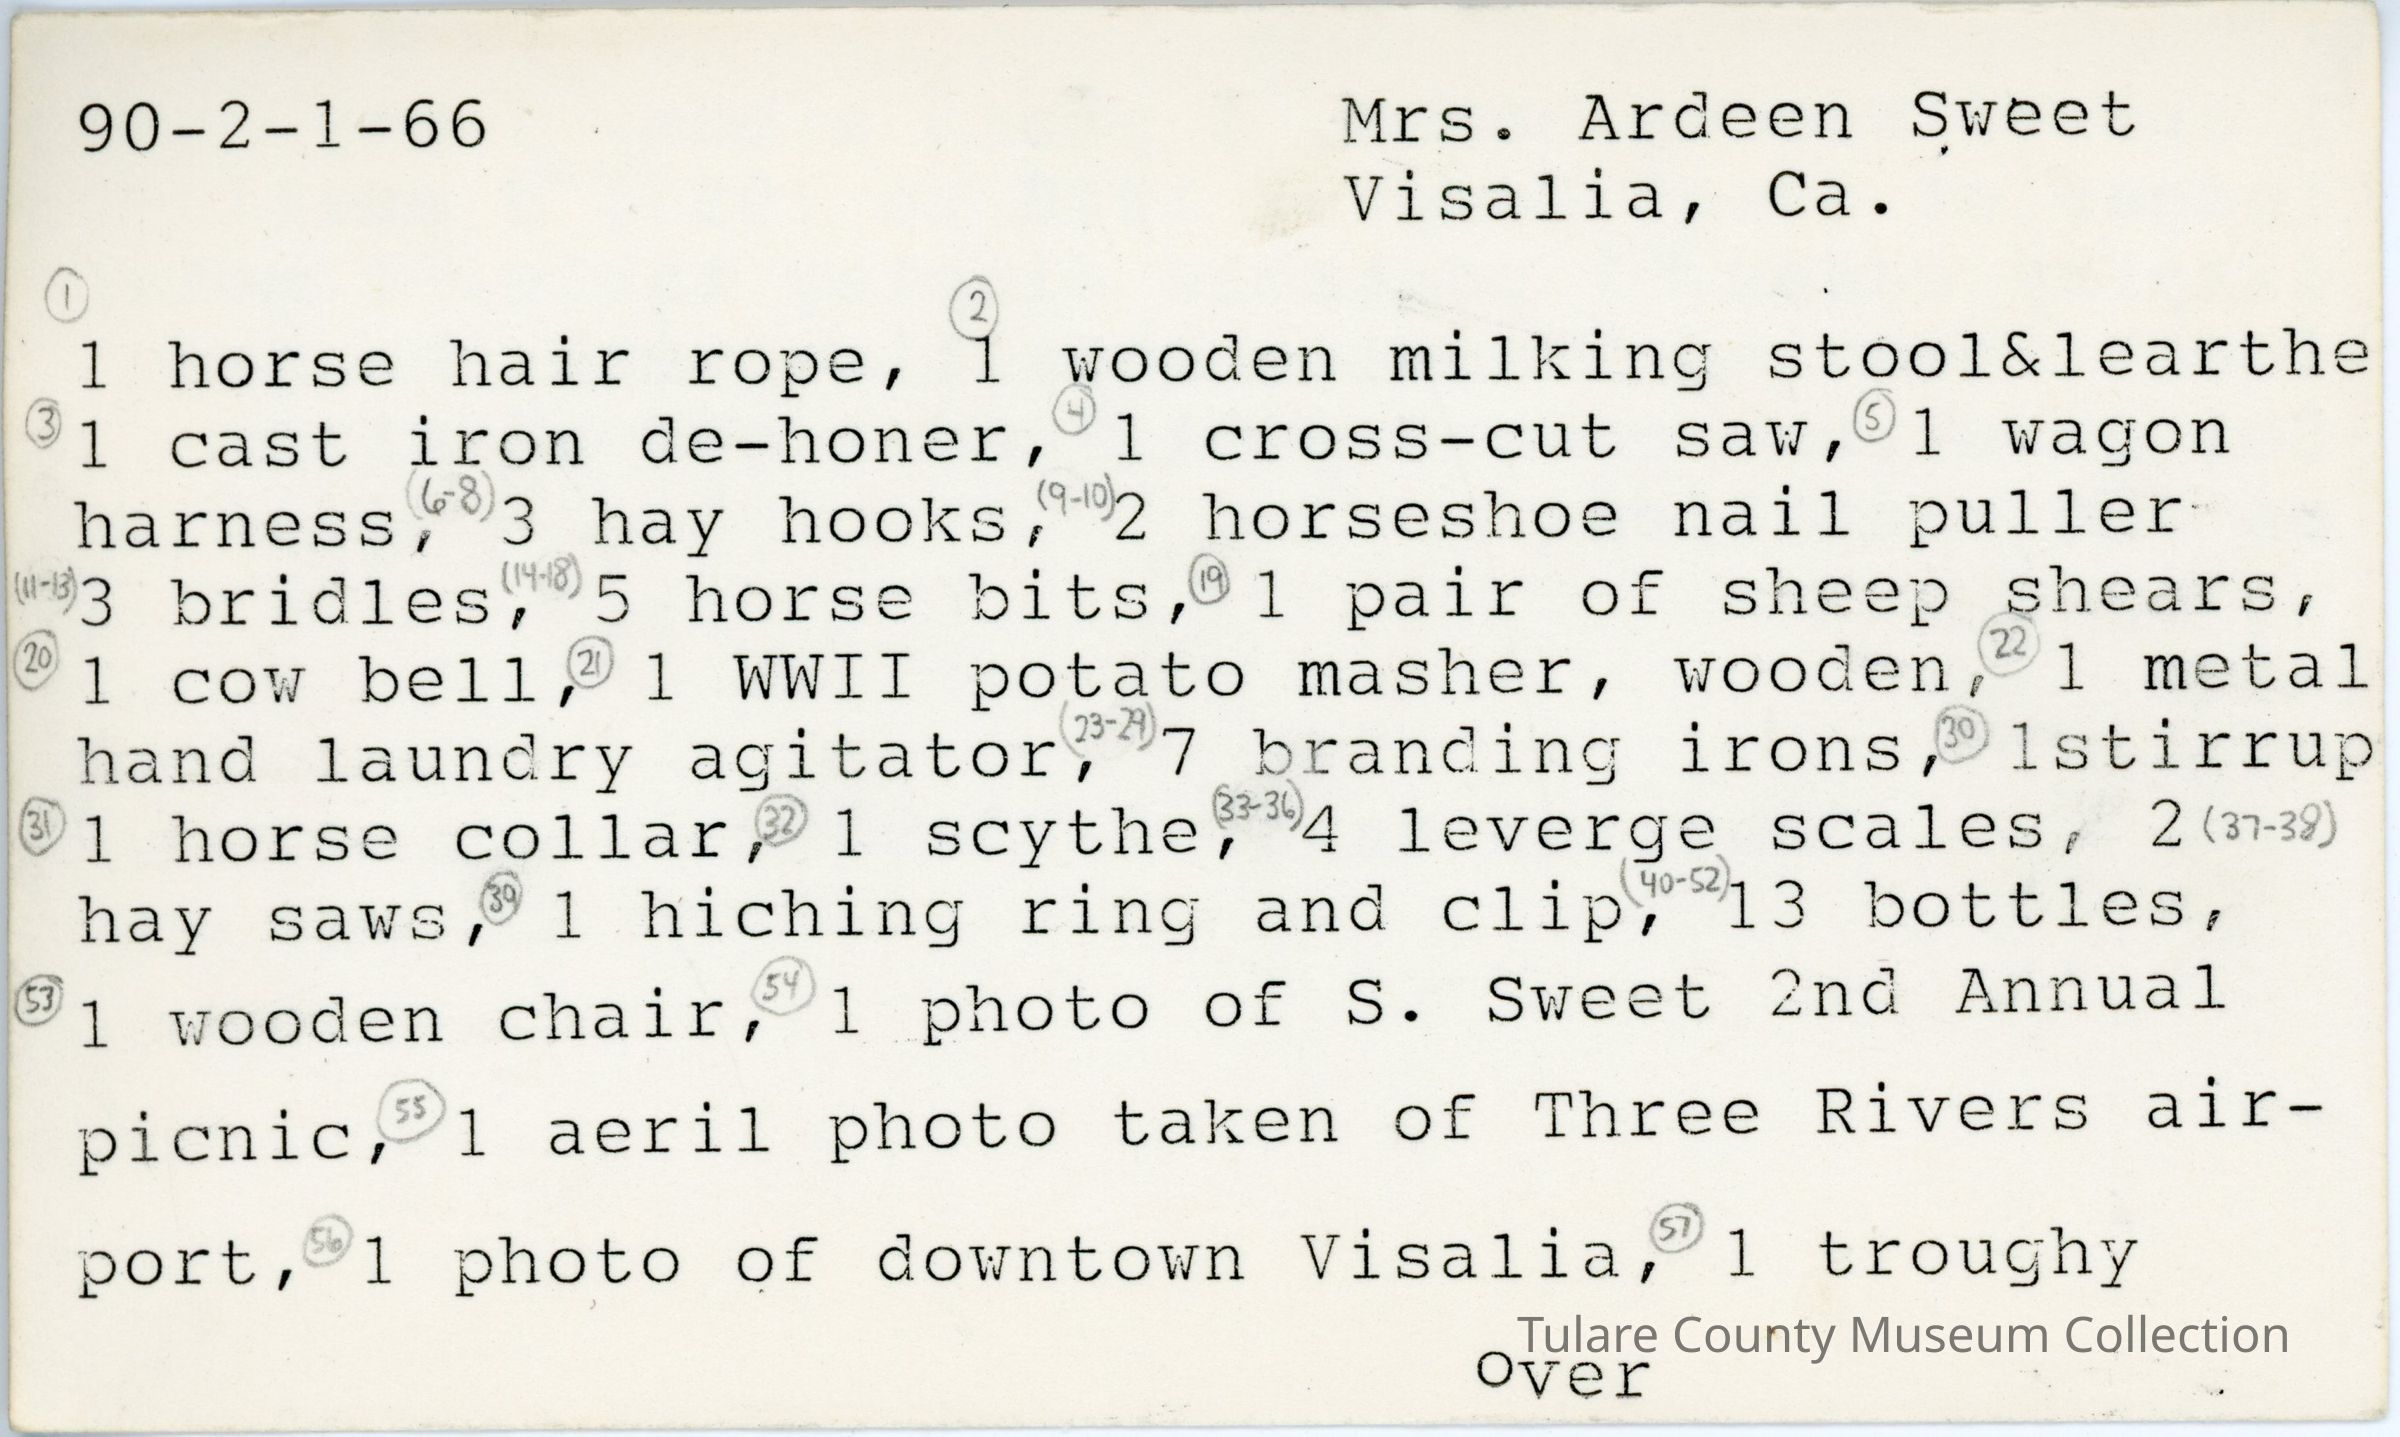 90-2-1-66 Mrs. Ardeen Sweet
Visalia, Ca.
① ②
1 horse hair rope, 1 wooden milking stool&learthe
③ 1 cast iron de-honer, ④ 1 cross-cut saw, ⑤ 1 wagon
harness, (6-8) 3 hay hooks, (9-10) 2 horseshoe nail puller
(11-13) 3 bridles, (14-18) 5 horse bits, ⑲ 1 pair of sheep shears,
⑳ 1 cow bell, ㉑ 1 WWII potato masher, wooden, ㉒ 1 metal
hand laundry agitator, (23-29) 7 branding irons, ㉚ 1stirrup
㉛ 1 horse collar, ㉜ 1 scythe, (33-36) 4 leverge scales, 2 (37-38)
hay saws, ㊴ 1 hiching ring and clip, (40-52) 13 bottles,
53 1 wooden chair, 54 1 photo of S. Sweet 2nd Annual
picnic, 55 1 aeril photo taken of Three Rivers air-
port, 56 1 photo of downtown Visalia, 57 1 troughy
Tulare County Museum Collection
over